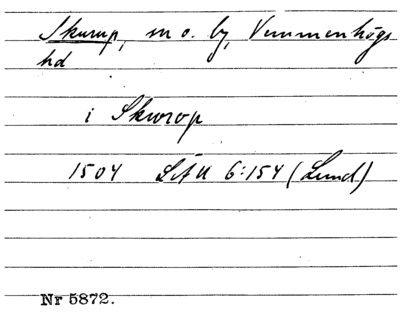 Skurup, sn o. by, Vemmenhögs
hd
i Skwrop
1504 LÄU 6:154 (Lund)
Nr 5872.